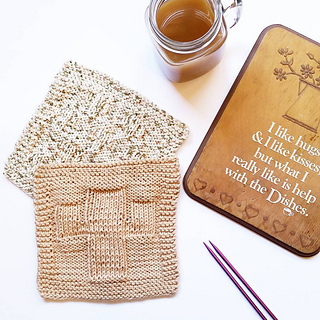 I like hugs
& I like kisses,
but what I
really like is help
with the Dishes.